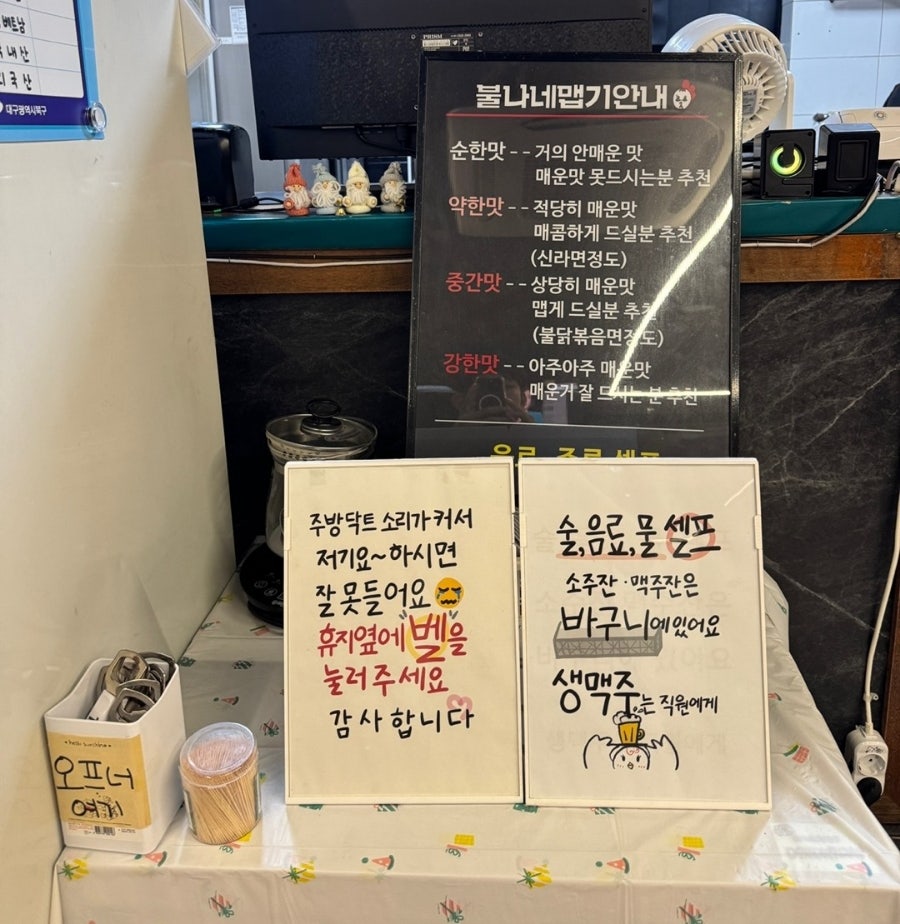 베트남
국내산
대구광역시북구
PRISM
불나네맵기안내
순한맛 -- 거의 안매운 맛
매운맛 못드시는분 추천
약한맛 -- 적당히 매운맛
매콤하게 드실분 추천
(신라면정도)
중간맛 -- 상당히 매운맛
맵게 드실분 추천
(불닭볶음면정도)
강한맛 -- 아주아주 매운맛
매운거 잘 드시는 분 추천
음료, 주류 셀프
주방 닥트 소리가 커서
저기요~ 하시면
잘 못들어요
휴지옆에 벨을
눌러 주세요
감사합니다
술, 음료, 물 셀프
소주잔 · 맥주잔은
바구니에 있어요
생맥주는 직원에게
hello sunshine
오프너
여기